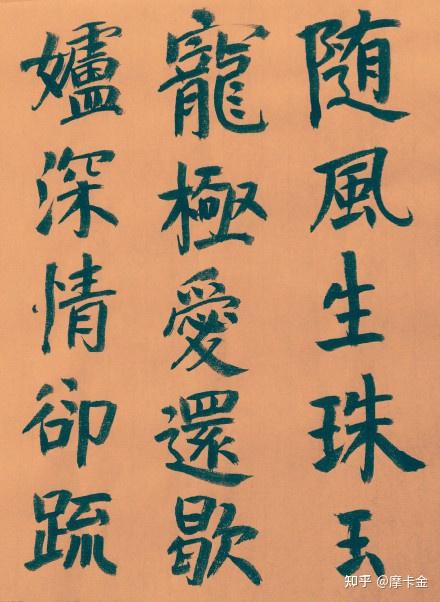 随風生珠玉
寵極愛還歇
深情卻疏
知乎 @摩卡金